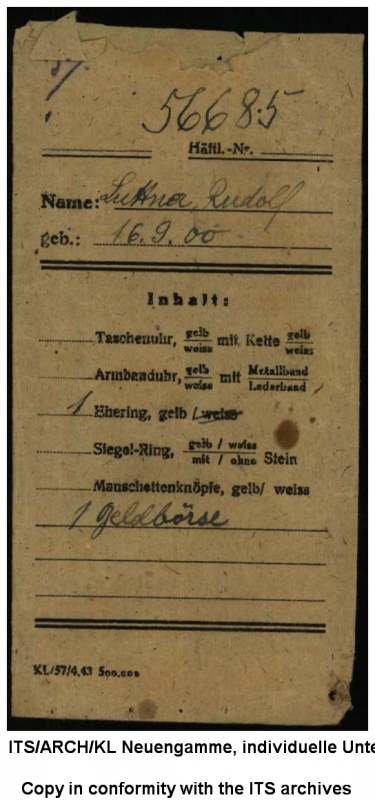 56685
Häftl.-Nr.
Name: Rudolf
geb.: 16.9.00
Inhalt:
Taschenuhr, gelb weiss mit Kette gelb weiss
Armbanduhr, gelb weiss mit Metallband Lederband
1 Ehering, gelb / weiss
Siegel-Ring, gelb / weiss mit / ohne Stein
Manschettenknöpfe, gelb/ weiss
1 Geldbörse
KL/57/4.43 500.000
ITS/ARCH/KL Neuengamme, individuelle Unte
Copy in conformity with the ITS archives